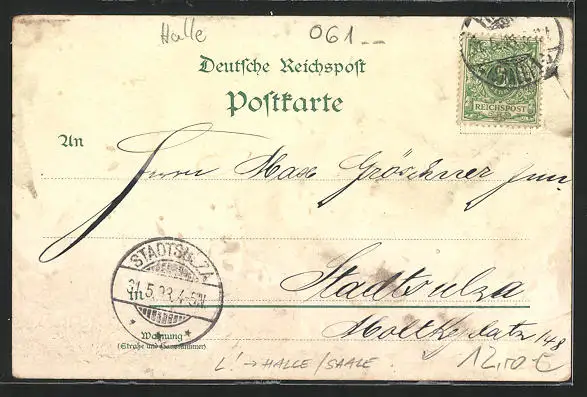 Halle
061 --
Deutsche Reichspost
Postkarte
REICHSPOST
An
Herrn Max Gröschner jun
STADTSULZA
31.5.98.4-5N
Stadtsulza
in
Wohnung
(Straße und Hausnummer)
Moltkeplatz 148
L! → HALLE/SAALE
12,10 €